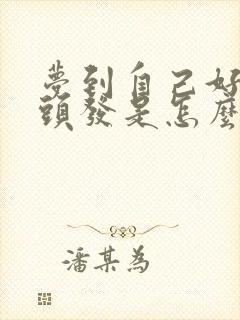 夢到自己好
頭發是怎麼
潘某為